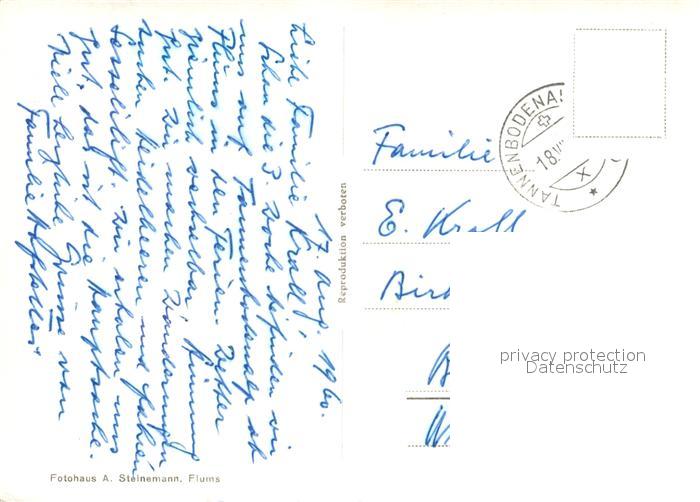 17. Aug. 1960.
Liebe Familie Krall!
Schon die 3. Woche befinden wir
uns auf Tannenbodenalp ob
Flums in den Ferien. Wetter
ziemlich wechselbar, Stimmung
gut. Wir machen Wanderungen
suchen Heidelbeeren und fahren
Sessellift. Wir erholen uns
gut, das ist die Hauptsache.
Viele herzliche Grüsse von
Familie
Reproduktion verboten
Fotohaus A. Steinemann, Flums
TANNENBODENA
18.VI
X
Familie
E. Krall
Bir
privacy protection
Datenschutz